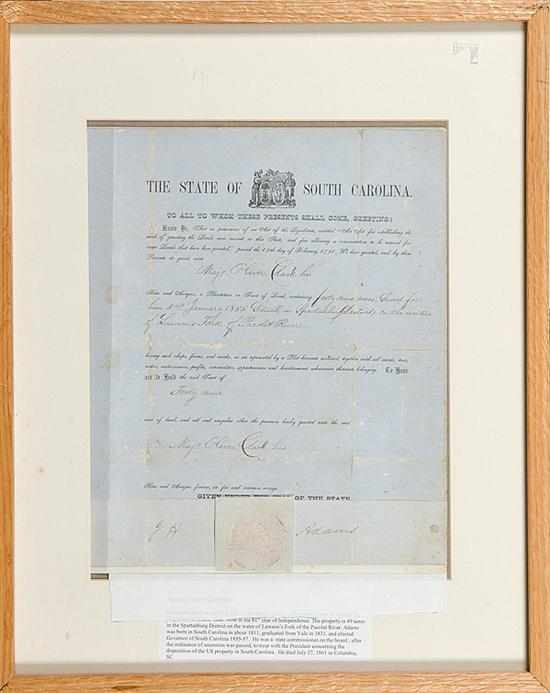 THE STATE OF SOUTH CAROLINA.
TO ALL TO WHOM THESE PRESENTS SHALL COME, GREETING:
Know Ye, That in pursuance of an Act of the Legislature, entitled "An Act for establishing the
mode of granting the Lands now vacant in this State, and for allowing a commutation to be received for
some Lands that have been granted," passed the 19th day of February, 1791, We have granted, and by these
Presents do grant unto
Majr Oliver Clark his
Heirs and Assigns, a Plantation or Tract of Land, containing forty nine acres, Surveyd for
him 2nd January 1856 Situate in Spartanburg District, on the waters
of Lawson's Fork of Pacolet River
having such shape, form, and marks, as are represented by a Plat hereunto annexed, together with all woods, trees,
waters, water-courses, profits, commodities, appurtenances and hereditaments whatsoever thereunto belonging. To Have
and to Hold the said Tract of
Forty nine
acres of land, and all and singular other the premises hereby granted unto the said
Majr Oliver Clark his
Heirs and Assigns forever, in free and common soccage.
GIVEN UNDER THE SEAL OF THE STATE
J H Adams
year of Independence. The property is 49 acres
in the Spartanburg District on the water of Lawson's Fork of the Pacolet River. Adams
was born in South Carolina in about 1811, graduated from Yale in 1831, and elected
Governor of South Carolina 1855-57. He was a state commissioned on the board, after
the ordinance of secession was passed, to treat with the President concerning the
disposition of the US property in South Carolina. He died July 27, 1861 in Columbia,
SC